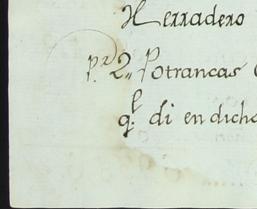 Herradero
p.r 2,, Potrancas
q.e di en dicha